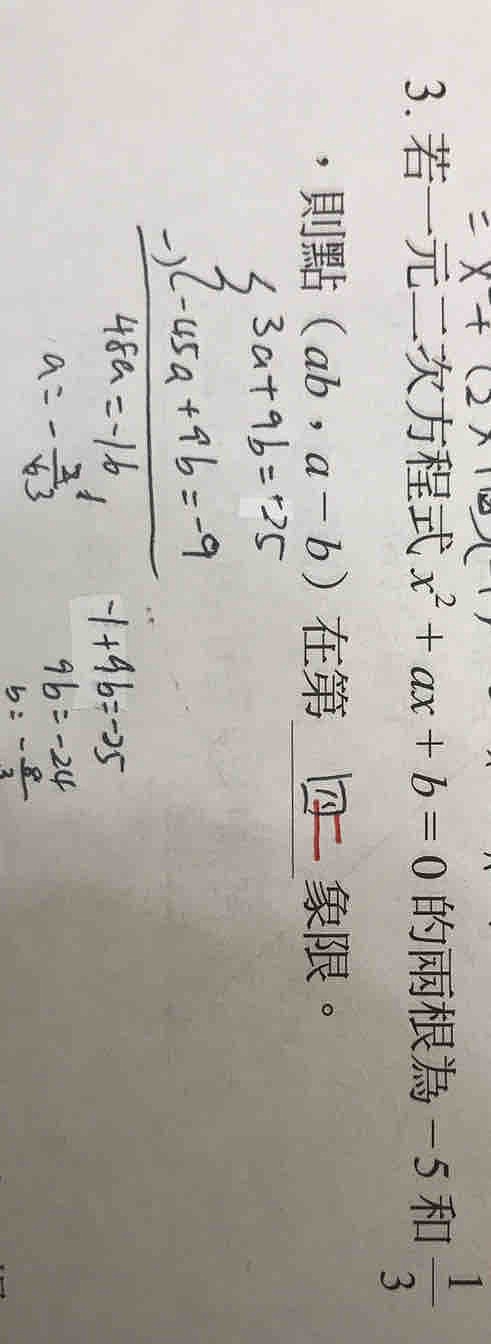 3. 若一元二次方程式 x² + ax + b = 0 的兩根為 −5 和 1/3
，則點（ab，a − b）在第 四 二 象限。
3a + 9b = -25
-) -45a + 9b = -9
48a = -16
a = -1/3
-1 + 9b = -25
9b = -24
b = -8/3